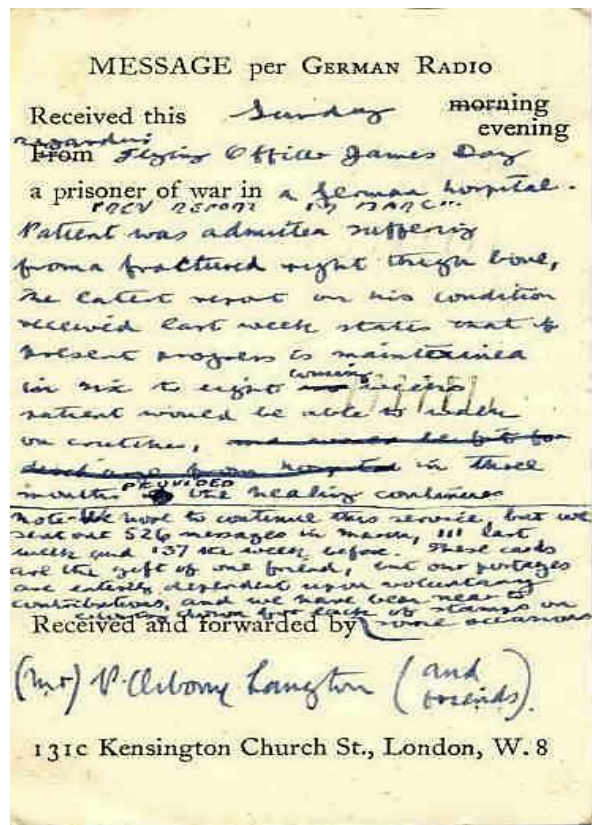 MESSAGE per GERMAN RADIO
Received this Sunday morning
evening
regarding
From Flying Officer James Day
a prisoner of war in a German hospital.
PREV REPORT IN MARCH
Patient was admitted suffering
from a fractured right thigh bone,
The latest report on his condition
received last week states that if
present progress is maintained
in six to eight weeks
coming
patient would be able to walk
on crutches, and
discharge from hospital in three
months PROVIDED the healing continues
Note- We hope to continue this service, but we
sent out 526 messages in March, 111 last
week and 137 the week before. These cards
are the gift of one friend, but our postages
are entirely dependent upon voluntary
contributions, and we have been near to
closing down for lack of stamps on
Received and forwarded by some occasions
(Mr) P. Osborne Langton (and
friends).
131C Kensington Church St., London, W. 8